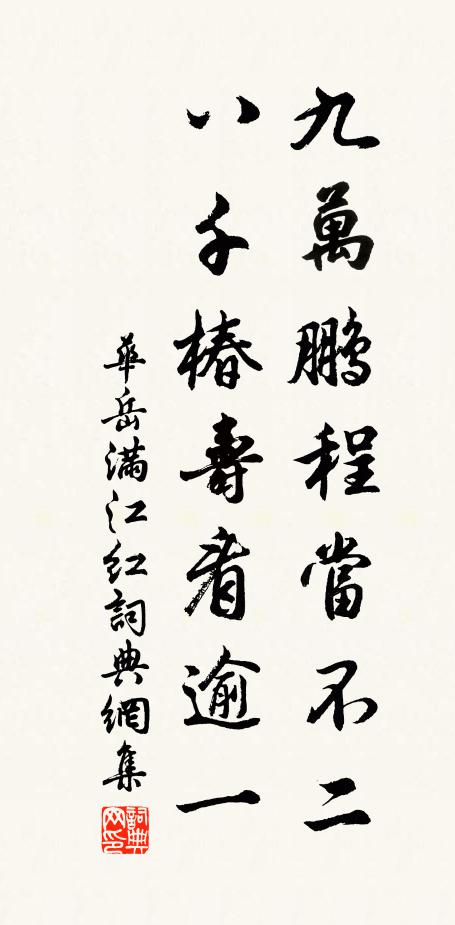 九萬鵬程當不二
八千椿壽看逾一
華岳满江红詞典網集
詞典网印